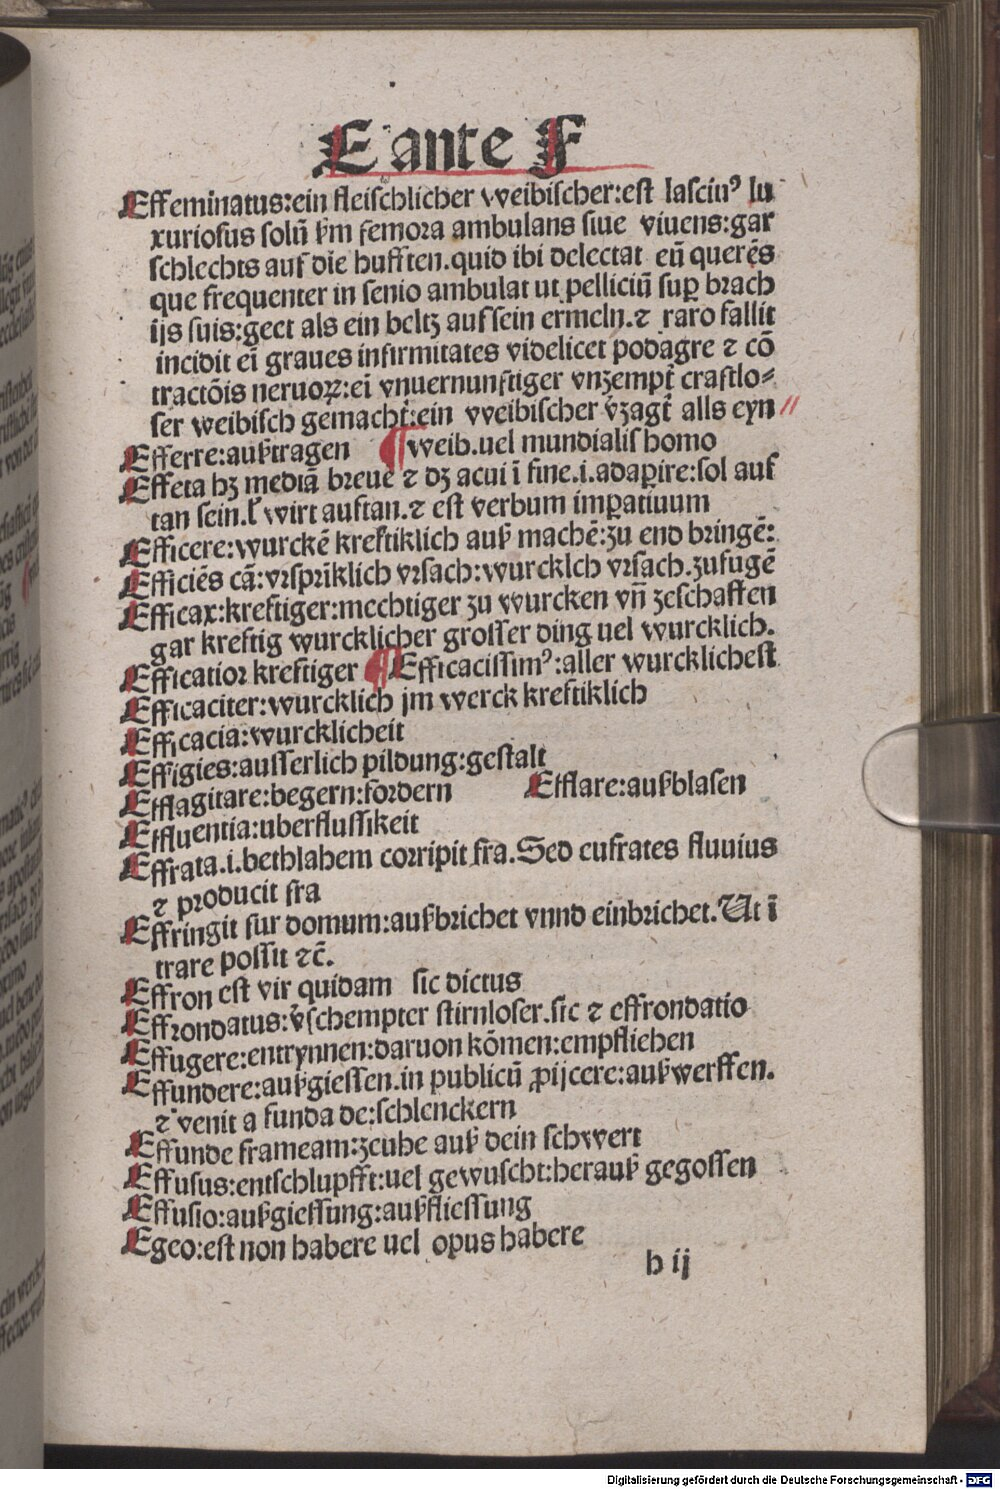 E ante F
Effeminatus:ein fleischlicher weibischer:est lasciuꝰ lu
xuriosus solū ẜm femora ambulans siue viuens:gar
schlechts auf die hufften.quid ibi delectat eū querēs
que frequenter in senio ambulat ut pelliciū suꝑ brach
ijs suis:geet als ein beltz auf sein ermeln.⁊ raro fallit
incidit eī graues infirmitates videlicet podagre ⁊ cō
tractōis neruoꝝ:eī vnuernunftiger vnzempt̄ craftlo⸗
ser weibisch gemacht̄:ein weibischer v̄zagt̄ alls eyn
Efferre:außtragen ¶weib.uel mundialis homo
Effeta hꝫ mediā breue ⁊ dꝫ acui ī fine.i.adaꝑire:sol auf
tan sein.ł wirt auftan.⁊ est verbum imꝑatiuum
Efficere:wurckē kreftiklich auß machē:zu end bringē:
Efficiēs cā:vrsprīklich vrsach:wurcklch vrsach.zufugē
Efficax:kreftiger:mechtiger zu wurcken vn̄ zeschaffen
gar kreftig wurcklicher grosser ding uel wurcklich.
Efficatior kreftiger ¶Efficacissimꝰ:aller wurcklichest
Efficaciter:wurcklich jm werck kreftiklich
Efficacia:wurcklicheit
Effigies:ausserlich pildung:gestalt
Efflagitare:begern:fordern Efflare:außblasen
Effluentia:uberflussikeit
Effrata.i.bethlahem corripit fra.Sed eufrates fluuius
⁊ producit fra
Effringit fur domum:außbrichet vnnd einbrichet.Ut ī
trare possit ⁊c̄.
Effron est vir quidam sic dictus
Effrondatus:v̄schempter stirnloser.sic ⁊ effrondatio
Effugere:entrynnen:daruon kōmen:empfliehen
Effundere:außgiessen.in publicū ꝓijcere:außwerffen.
⁊ venit a funda de:schlenckern
Effunde frameam:zeuhe auß dein schwert
Effusus:entschlupfft:uel gewuscht:herauß gegossen
Effusio:außgiessung:außfliessung
Egeo:est non habere uel opus habere
h ij
Digitalisierung gefördert durch die Deutsche Forschungsgemeinschaft - DFG